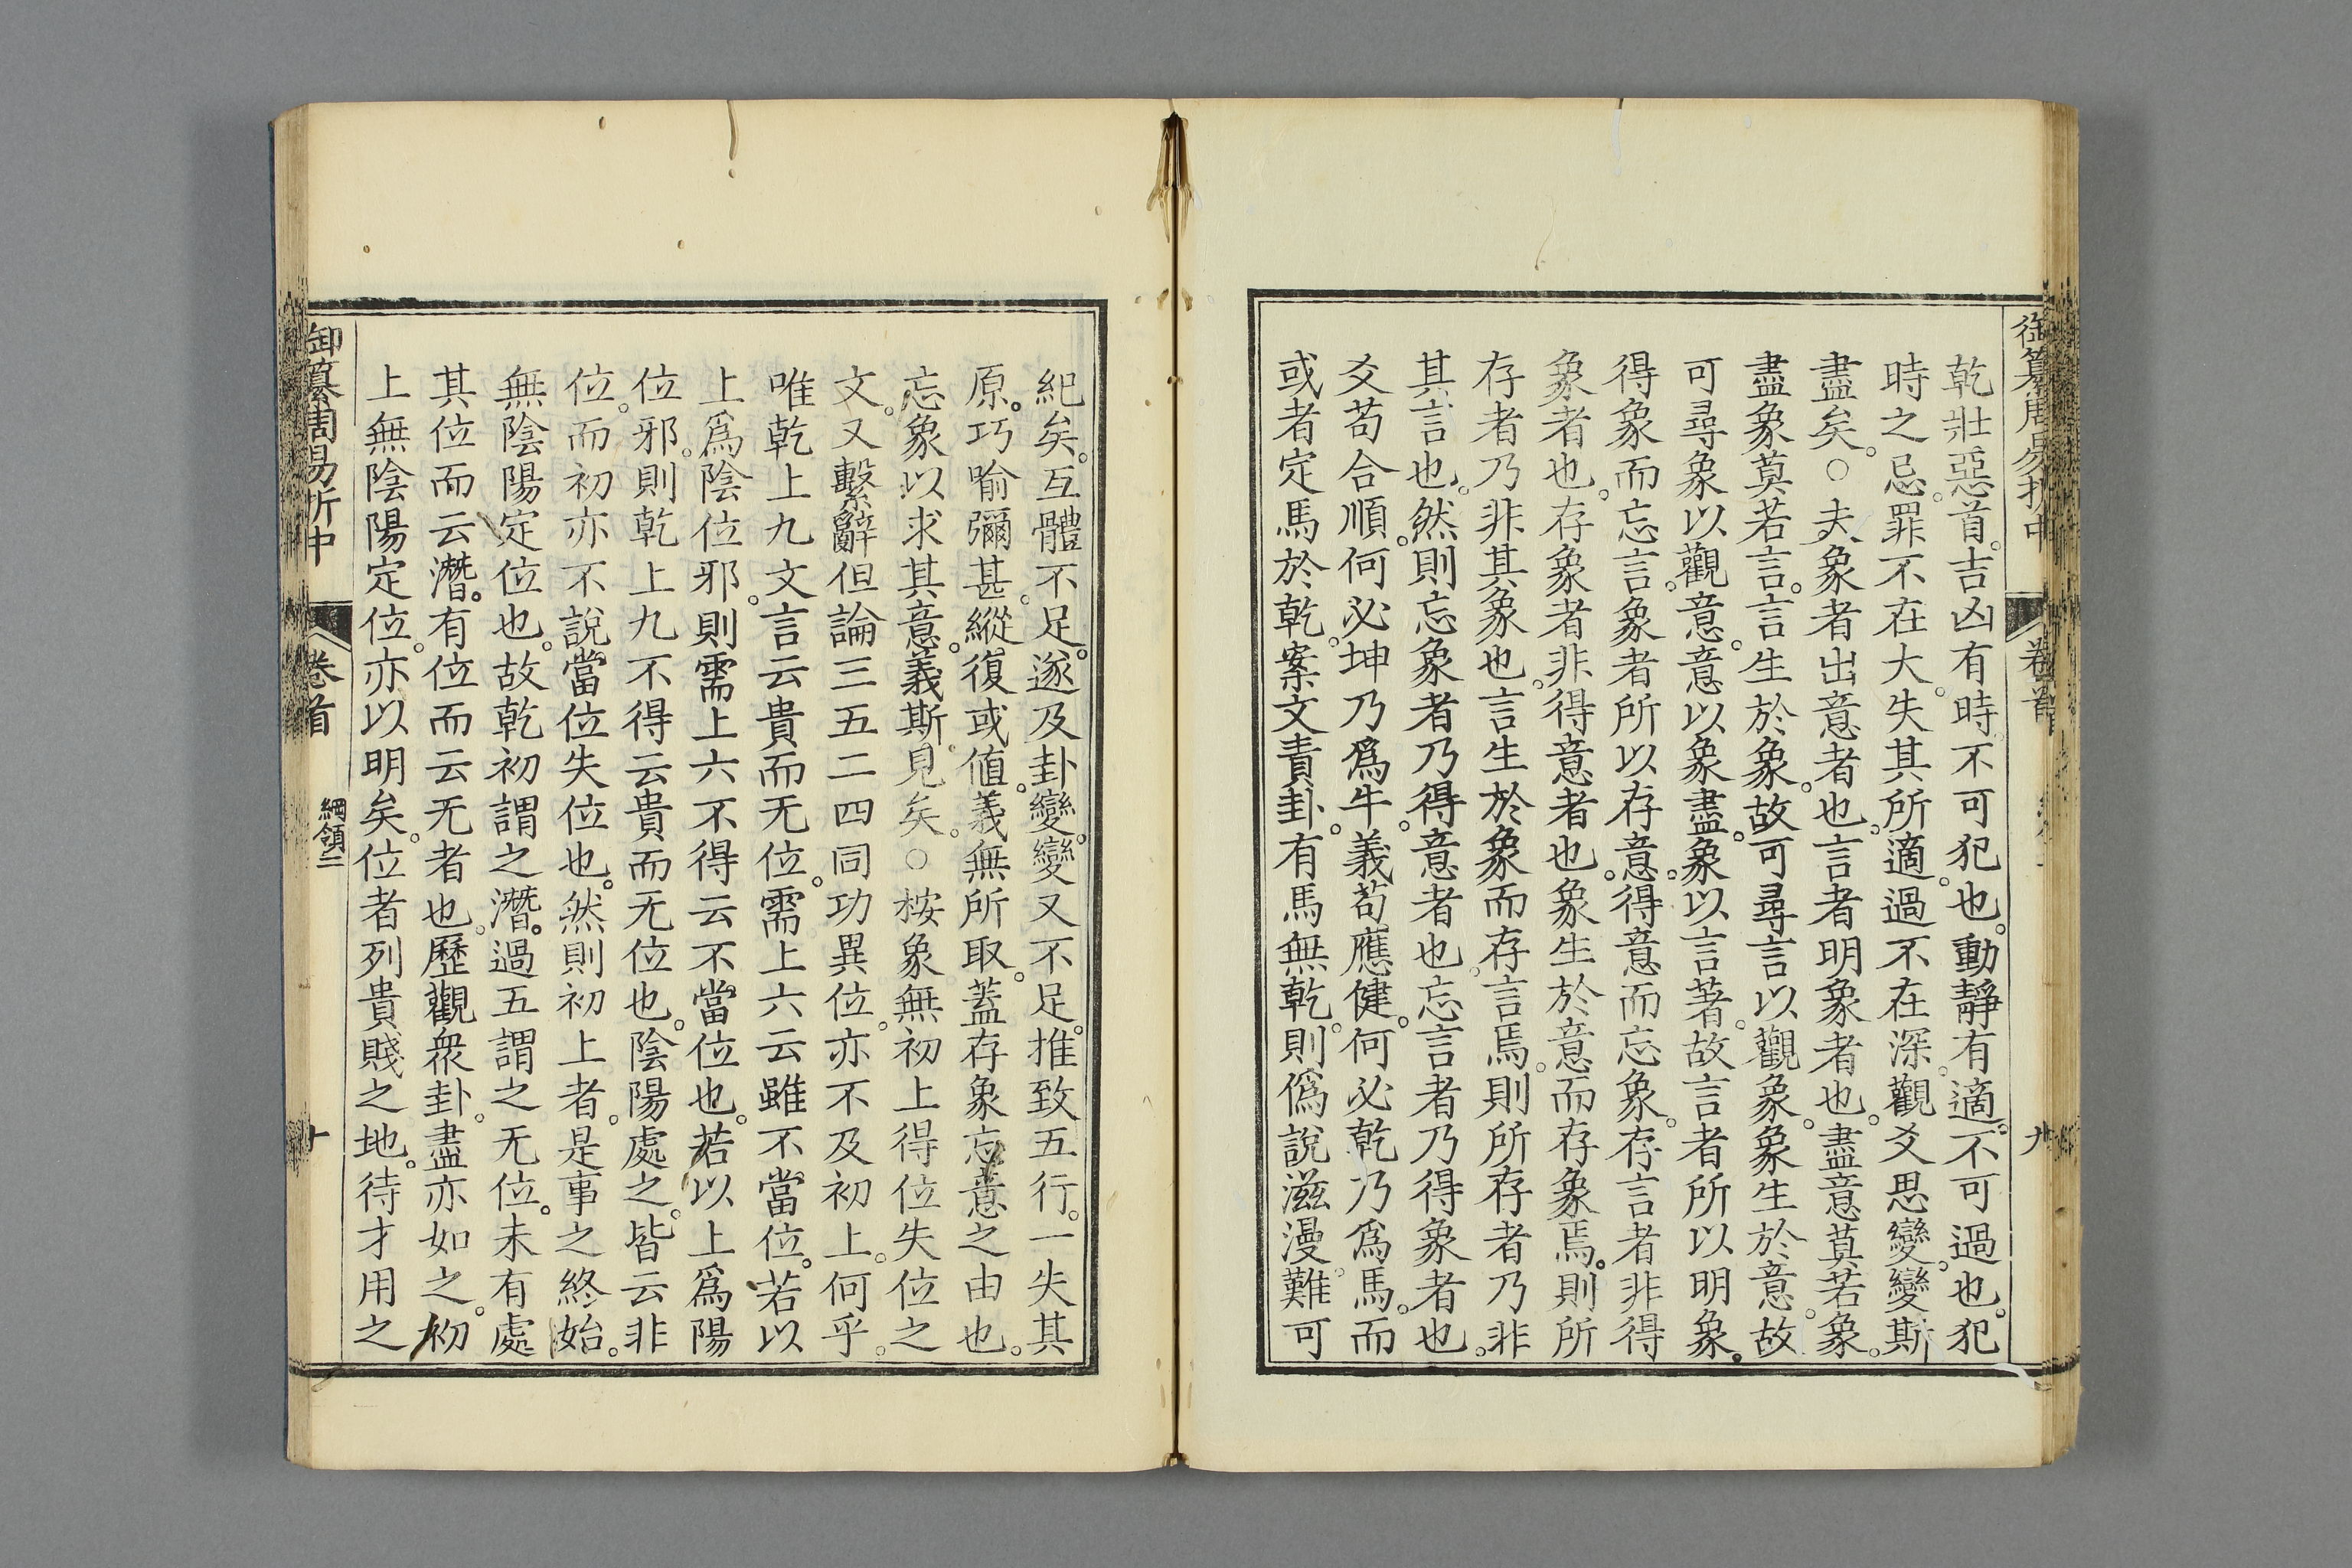 御纂周易折中 卷首 九
乾壯惡首。吉凶有時不可犯也。動靜有適。不可過也。犯
時之忌。罪不在大。失其所適。過不在深。觀爻思變。變斯
盡矣。○夫象者出意者也。言者明象者也。盡意莫若象。
盡象莫若言。言生於象。故可尋言以觀象。象生於意。故
可尋象以觀意。意以象盡。象以言著。故言者所以明象。
得象而忘言。象者所以存意。得意而忘象。存言者非得
象者也。存象者非得意者也。象生於意而存象焉。則所
存者乃非其象也。言生於象而存言焉。則所存者乃非
其言也。然則忘象者乃得意者也。忘言者乃得象者也。
爻苟合順。何必坤乃爲牛。義苟應健。何必乾乃爲馬。而
或者定馬於乾。案文責卦。有馬無乾。則僞說滋漫難可
紀矣。互體不足。遂及卦變。變又不足。推致五行。一失其
原。巧喻彌甚。縱復或値。義無所取。蓋存象忘意之由也。
忘象以求其意。義斯見矣。○桉象無初上得位失位之
文。又繫辭但論三五二四同功異位。亦不及初上。何乎。
唯乾上九文言云貴而无位。需上六云雖不當位。若以
上爲陰位邪。則需上六不得云不當位也。若以上爲陽
位邪。則乾上九不得云貴而无位也。陰陽處之。皆云非
位。而初亦不說當位失位也。然則初上者。是事之終始。
無陰陽定位也。故乾初謂之潛。過五謂之无位。未有處
其位而云潛。有位而云无者也。歷觀衆卦。盡亦如之。初
上無陰陽定位。亦以明矣。位者列貴賤之地。待才用之
御纂周易折中 卷首 綱領二 十